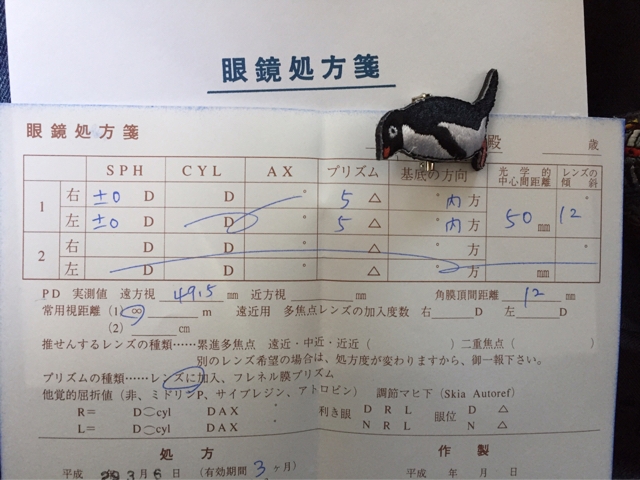 眼鏡処方箋
眼鏡処方箋 殿 歳
SPH CYL AX プリズム 基底の方向 光学的中心間距離 レンズの傾斜
1 右 ±0 D D ° 5 △ ° 内方 50 mm 12 °
左 ±0 D D ° 5 △ ° 内方
2 右 D D ° △ ° 方 °
左 D D ° △ ° 方 mm
PD 実測値 遠方視 49.5 mm 近方視 mm 角膜頂間距離 12 mm
常用視距離 (1) ∞ m 遠近用 多焦点レンズの加入度数 右 D 左 D
(2) cm
推せんするレンズの種類……累進多焦点 遠近・中近・近近 ( ) 二重焦点 (
別のレンズ希望の場合は、処方度が変わりますから、御一報下さい。
プリズムの種類……レンズに加入、フレネル膜プリズム
他覚的屈折値 (非、ミドリンP、サイプレジン、アトロピン) 調節マヒ下 (Skia Autoref)
R= D⌒cyl DAX ° 利き眼 D R L 眼位 D △
L= D⌒cyl DAX ° N R L N △
処方 作製
平成 29年 3月 6日 (有効期間 3ヶ月) 平成 年 月 日